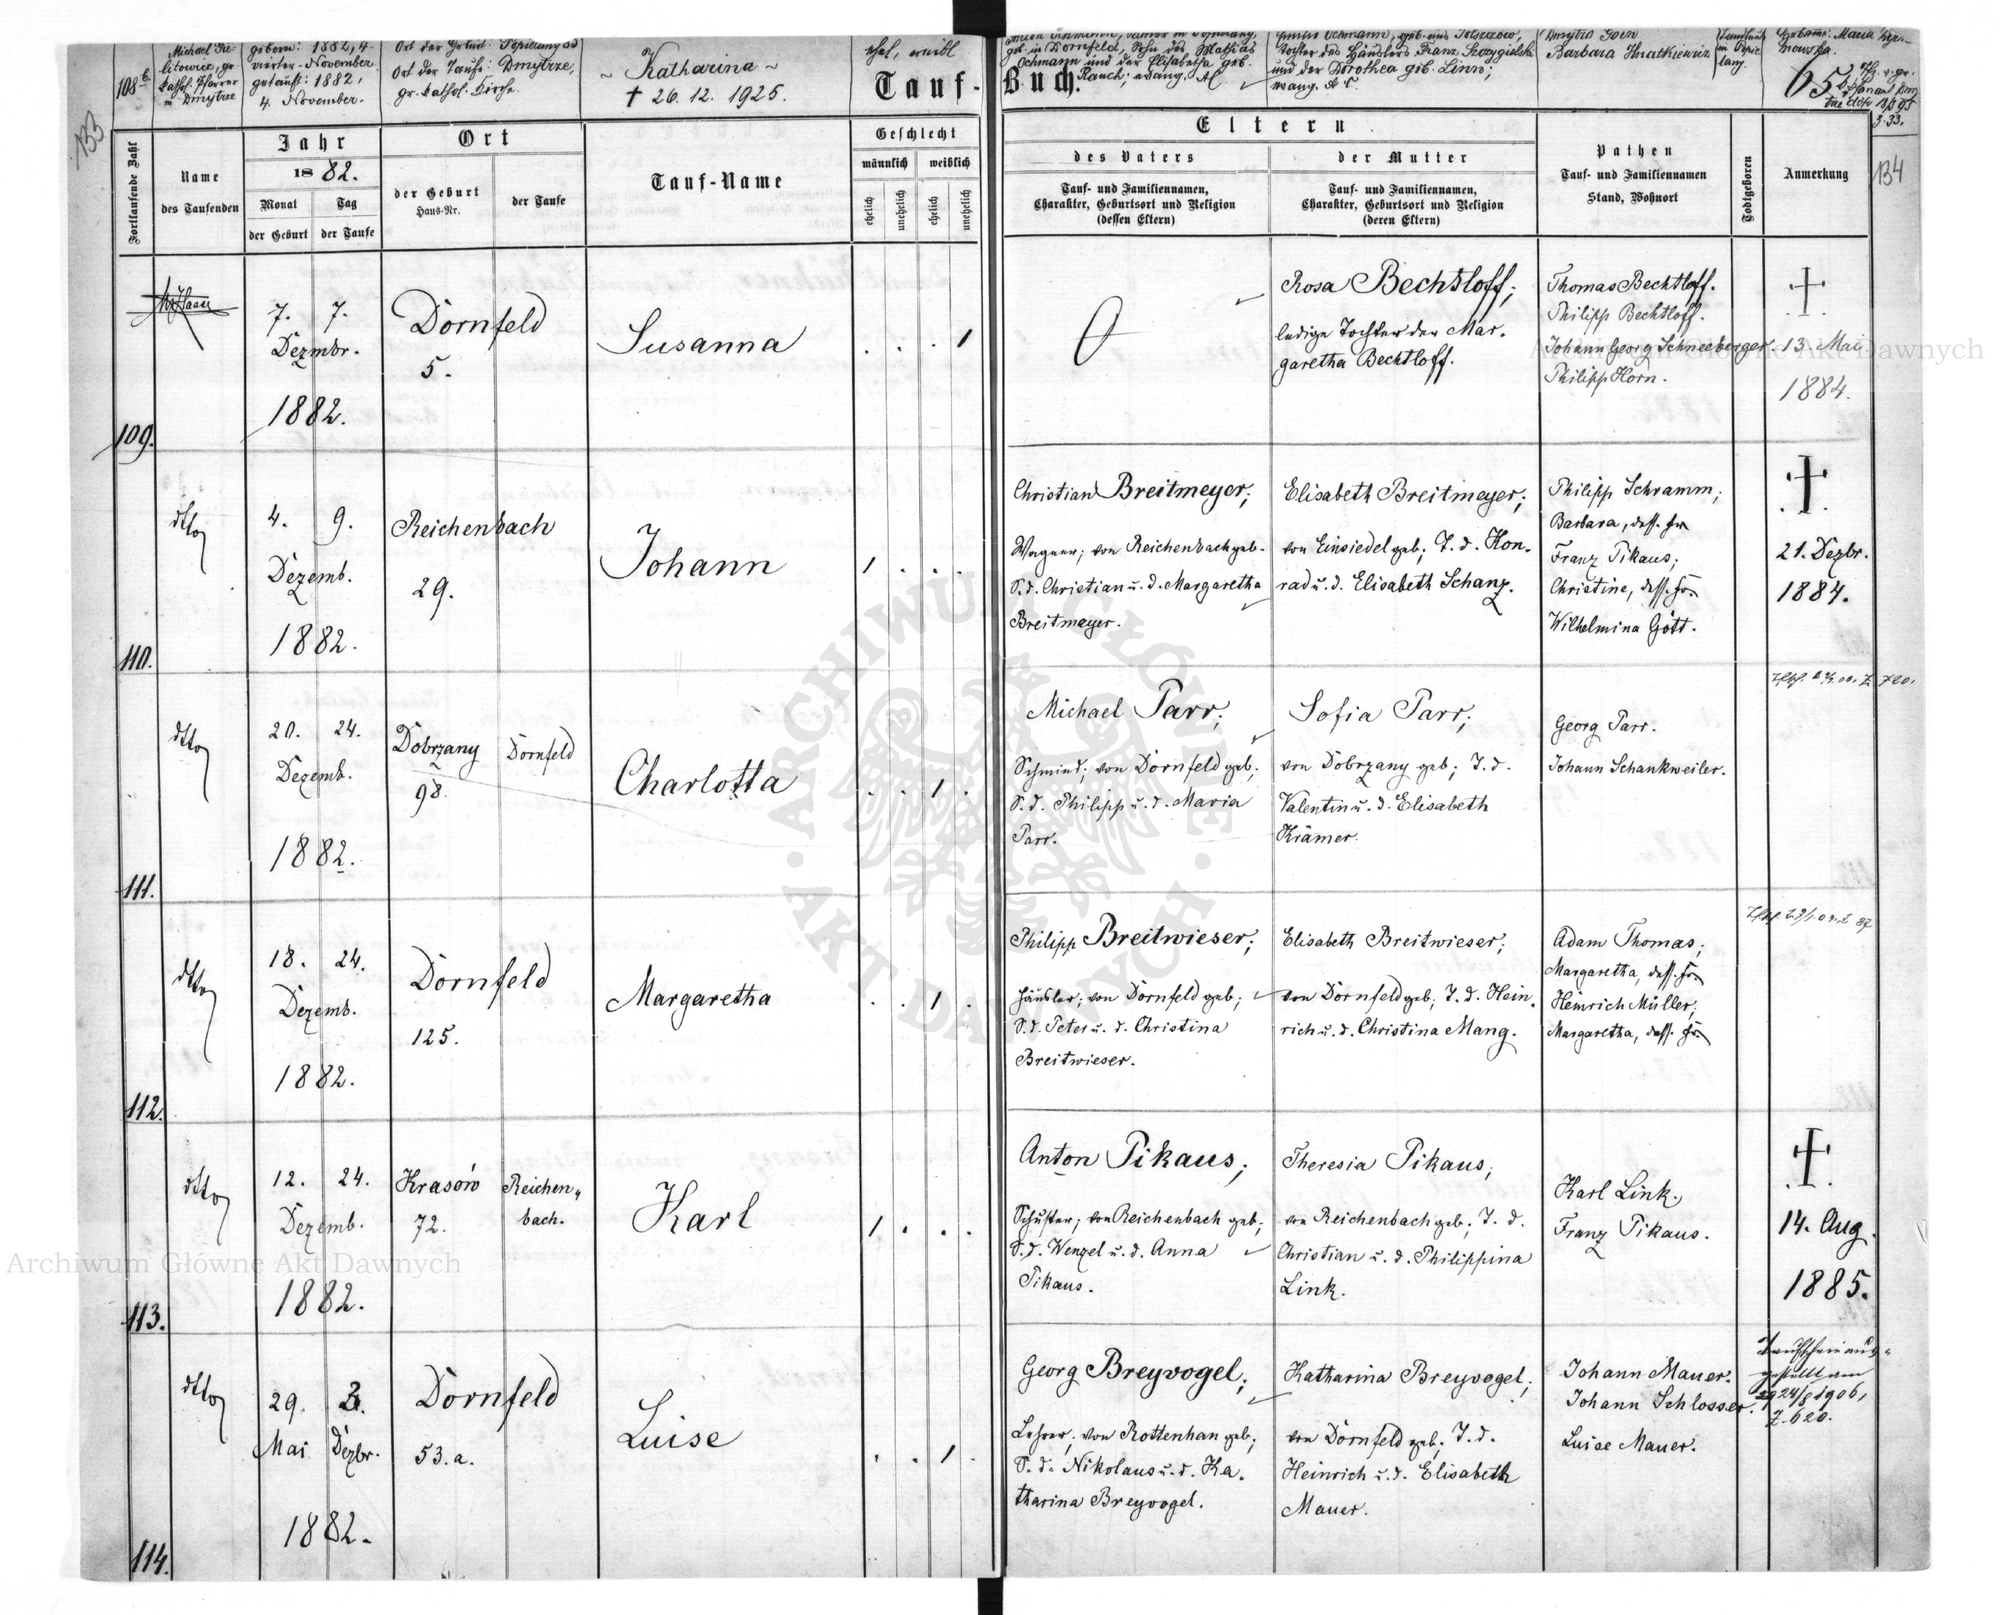 108 b.
Michael
litowicz, gr.
kathol. Pfarrer
in Dmytrze
geboren: 1882, 4-
vierter - November.
getauft: 1882,
4. November.
Ort der Geburt:
Ort der Taufe: Dmytrze,
gr. kathol. Kirche.
~ Katharina ~
† 26. 12. 1925.
ehel, weibl
Tauf-Buch.
geb. in Dornfeld, Sohn des Mathias
Ochmann und der Elisabetha geb.
Rauch; evang. AC
Tochter des Händlers Franz
und der Dorothea geb. Linn;
evang. A. C.
Barbara Hnatkiewicz
65
133
134
Fortlaufende Zahl
Name
des Taufenden
Jahr
1882.
Monat
Tag
der Geburt
der Taufe
Ort
der Geburt
Haus-Nr.
der Taufe
Tauf-Name
Geschlecht
männlich
weiblich
ehelich
unehelich
ehelich
unehelich
Eltern
des Vaters
Tauf- und Familiennamen,
Charakter, Geburtsort und Religion
(dessen Eltern)
der Mutter
Tauf- und Familiennamen,
Charakter, Geburtsort und Religion
(deren Eltern)
Pathen
Tauf- und Familiennamen
Stand, Wohnort
Todtgeboren
Anmerkung
109.
7. 7.
Dezmbr.
1882.
Dornfeld
5.
Susanna
. . . 1
Rosa Bechtloff;
ledige Tochter der Mar-
garetha Bechtloff.
Thomas Bechtloff.
Philipp Bechtloff.
Johann Georg Schneeberger
Philipp Horn.
13. Mai
1884.
110.
dtto
4. 9.
Dezemb.
1882.
Reichenbach
29.
Johann
1 . . .
Christian Breitmeyer;
Wagner; von Reichenbach geb.
S. d. Christian u. d. Margaretha
Breitmeyer.
Elisabeth Breitmeyer;
von Einsiedel geb; T. d. Kon-
rad u. d. Elisabeth Schanz.
Philipp Schramm;
Barbara, dess. Fr.
Franz Pikaus;
Christine, dess. Fr.
Wilhelmina Gött.
21. Dezbr.
1884.
111.
dtto
20. 24.
Dezemb.
1882.
Dobrzany
98.
Dornfeld
Charlotta
. . 1 .
Michael Parr;
Schmied; von Dornfeld geb;
S. d. Philipp u. d. Maria
Parr.
Sofia Parr;
von Dobrzany geb; T. d.
Valentin u. d. Elisabeth
Krämer.
Georg Parr.
Johann Schankweiler.
112.
dtto
18. 24.
Dezemb.
1882.
Dornfeld
125.
Margaretha
. . 1 .
Philipp Breitwieser;
Häusler; von Dornfeld geb;
S. d. Peter u. d. Christina
Breitwieser.
Elisabeth Breitwieser;
von Dornfeld geb; T. d. Hein-
rich u. d. Christina Mang.
Adam Thomas;
Margaretha, dess. Fr.
Heinrich Müller;
Margaretha, dess. Fr.
113.
dtto
12. 24.
Dezemb.
1882.
Krasów
72.
Reichen-
bach.
Karl
1 . . .
Anton Pikaus;
Schuster; von Reichenbach geb;
S. d. Wenzel u. d. Anna
Pikaus.
Theresia Pikaus;
von Reichenbach geb; T. d.
Christian u. d. Philippina
Link.
Karl Link.
Franz Pikaus.
14. Aug.
1885.
114.
dtto
29.
Mai Dezbr.
1882.
Dornfeld
53. a.
Luise
. . 1 .
Georg Breyvogel;
Lehrer; von Rottenhan geb;
S. d. Nikolaus u. d. Ka-
tharina Breyvogel.
Katharina Breyvogel;
von Dornfeld geb; T. d.
Heinrich u. d. Elisabeth
Mauer.
Johann Mauer.
Johann Schlosser.
Luise Mauer.
Taufschein aus-
gestellt am
24/8 1906,
Z. 620.
Archiwum Główne Akt Dawnych
Archiwum Główne Akt Dawnych
ARCHIWUM GŁÓWNE · AKT DAWNYCH ·